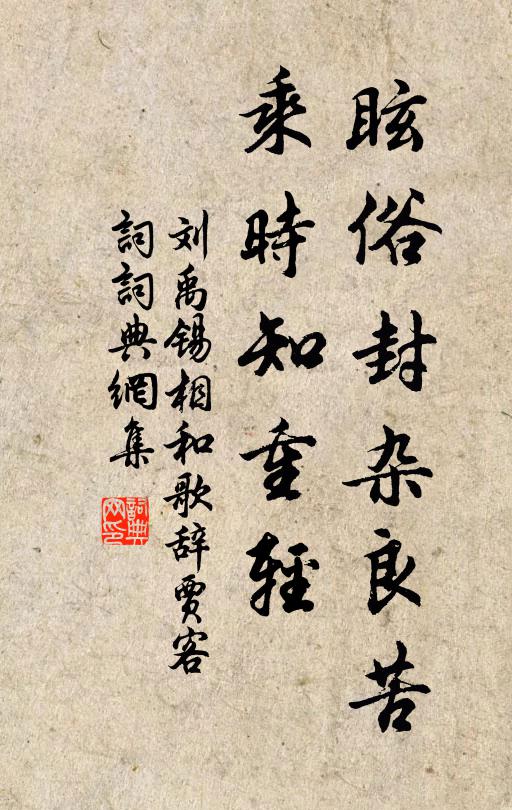 眩俗封杂良苦
乘時知重輕
刘禹锡相和歌辞賈客
詞詞典網集
詞典
网印